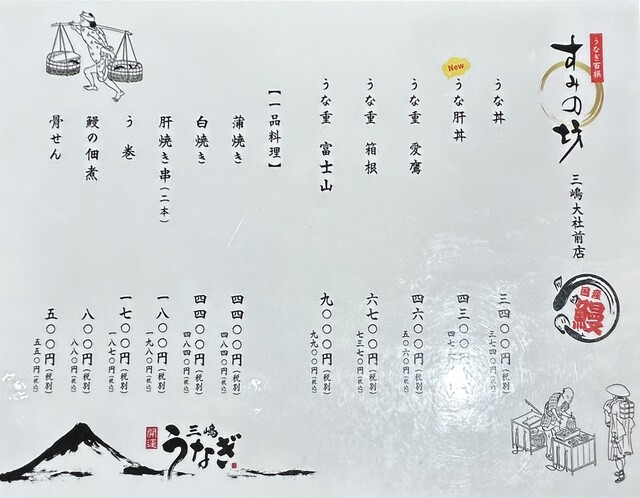 うなぎ百撰
すみの坊
三嶋大社前店
国産
鰻
うな丼
三四〇〇円(税別)
三七四〇円(税込)
New
うな肝丼
四三〇〇円
うな重 愛鷹
四六〇〇円(税別)
五〇六〇円(税込)
うな重 箱根
六七〇〇円(税別)
七三七〇円(税込)
うな重 富士山
九〇〇〇円(税別)
九九〇〇円(税込)
【一品料理】
蒲焼き
四四〇〇円(税別)
四八四〇円(税込)
白焼き
四四〇〇円(税別)
四八四〇円(税込)
肝焼き串(二本)
一八〇〇円(税別)
一九八〇円(税込)
う巻
一七〇〇円(税別)
一八七〇円(税込)
鰻の佃煮
八〇〇円(税別)
八八〇円(税込)
骨せん
五〇〇円(税別)
五五〇円(税込)
開運
三嶋
うなぎ